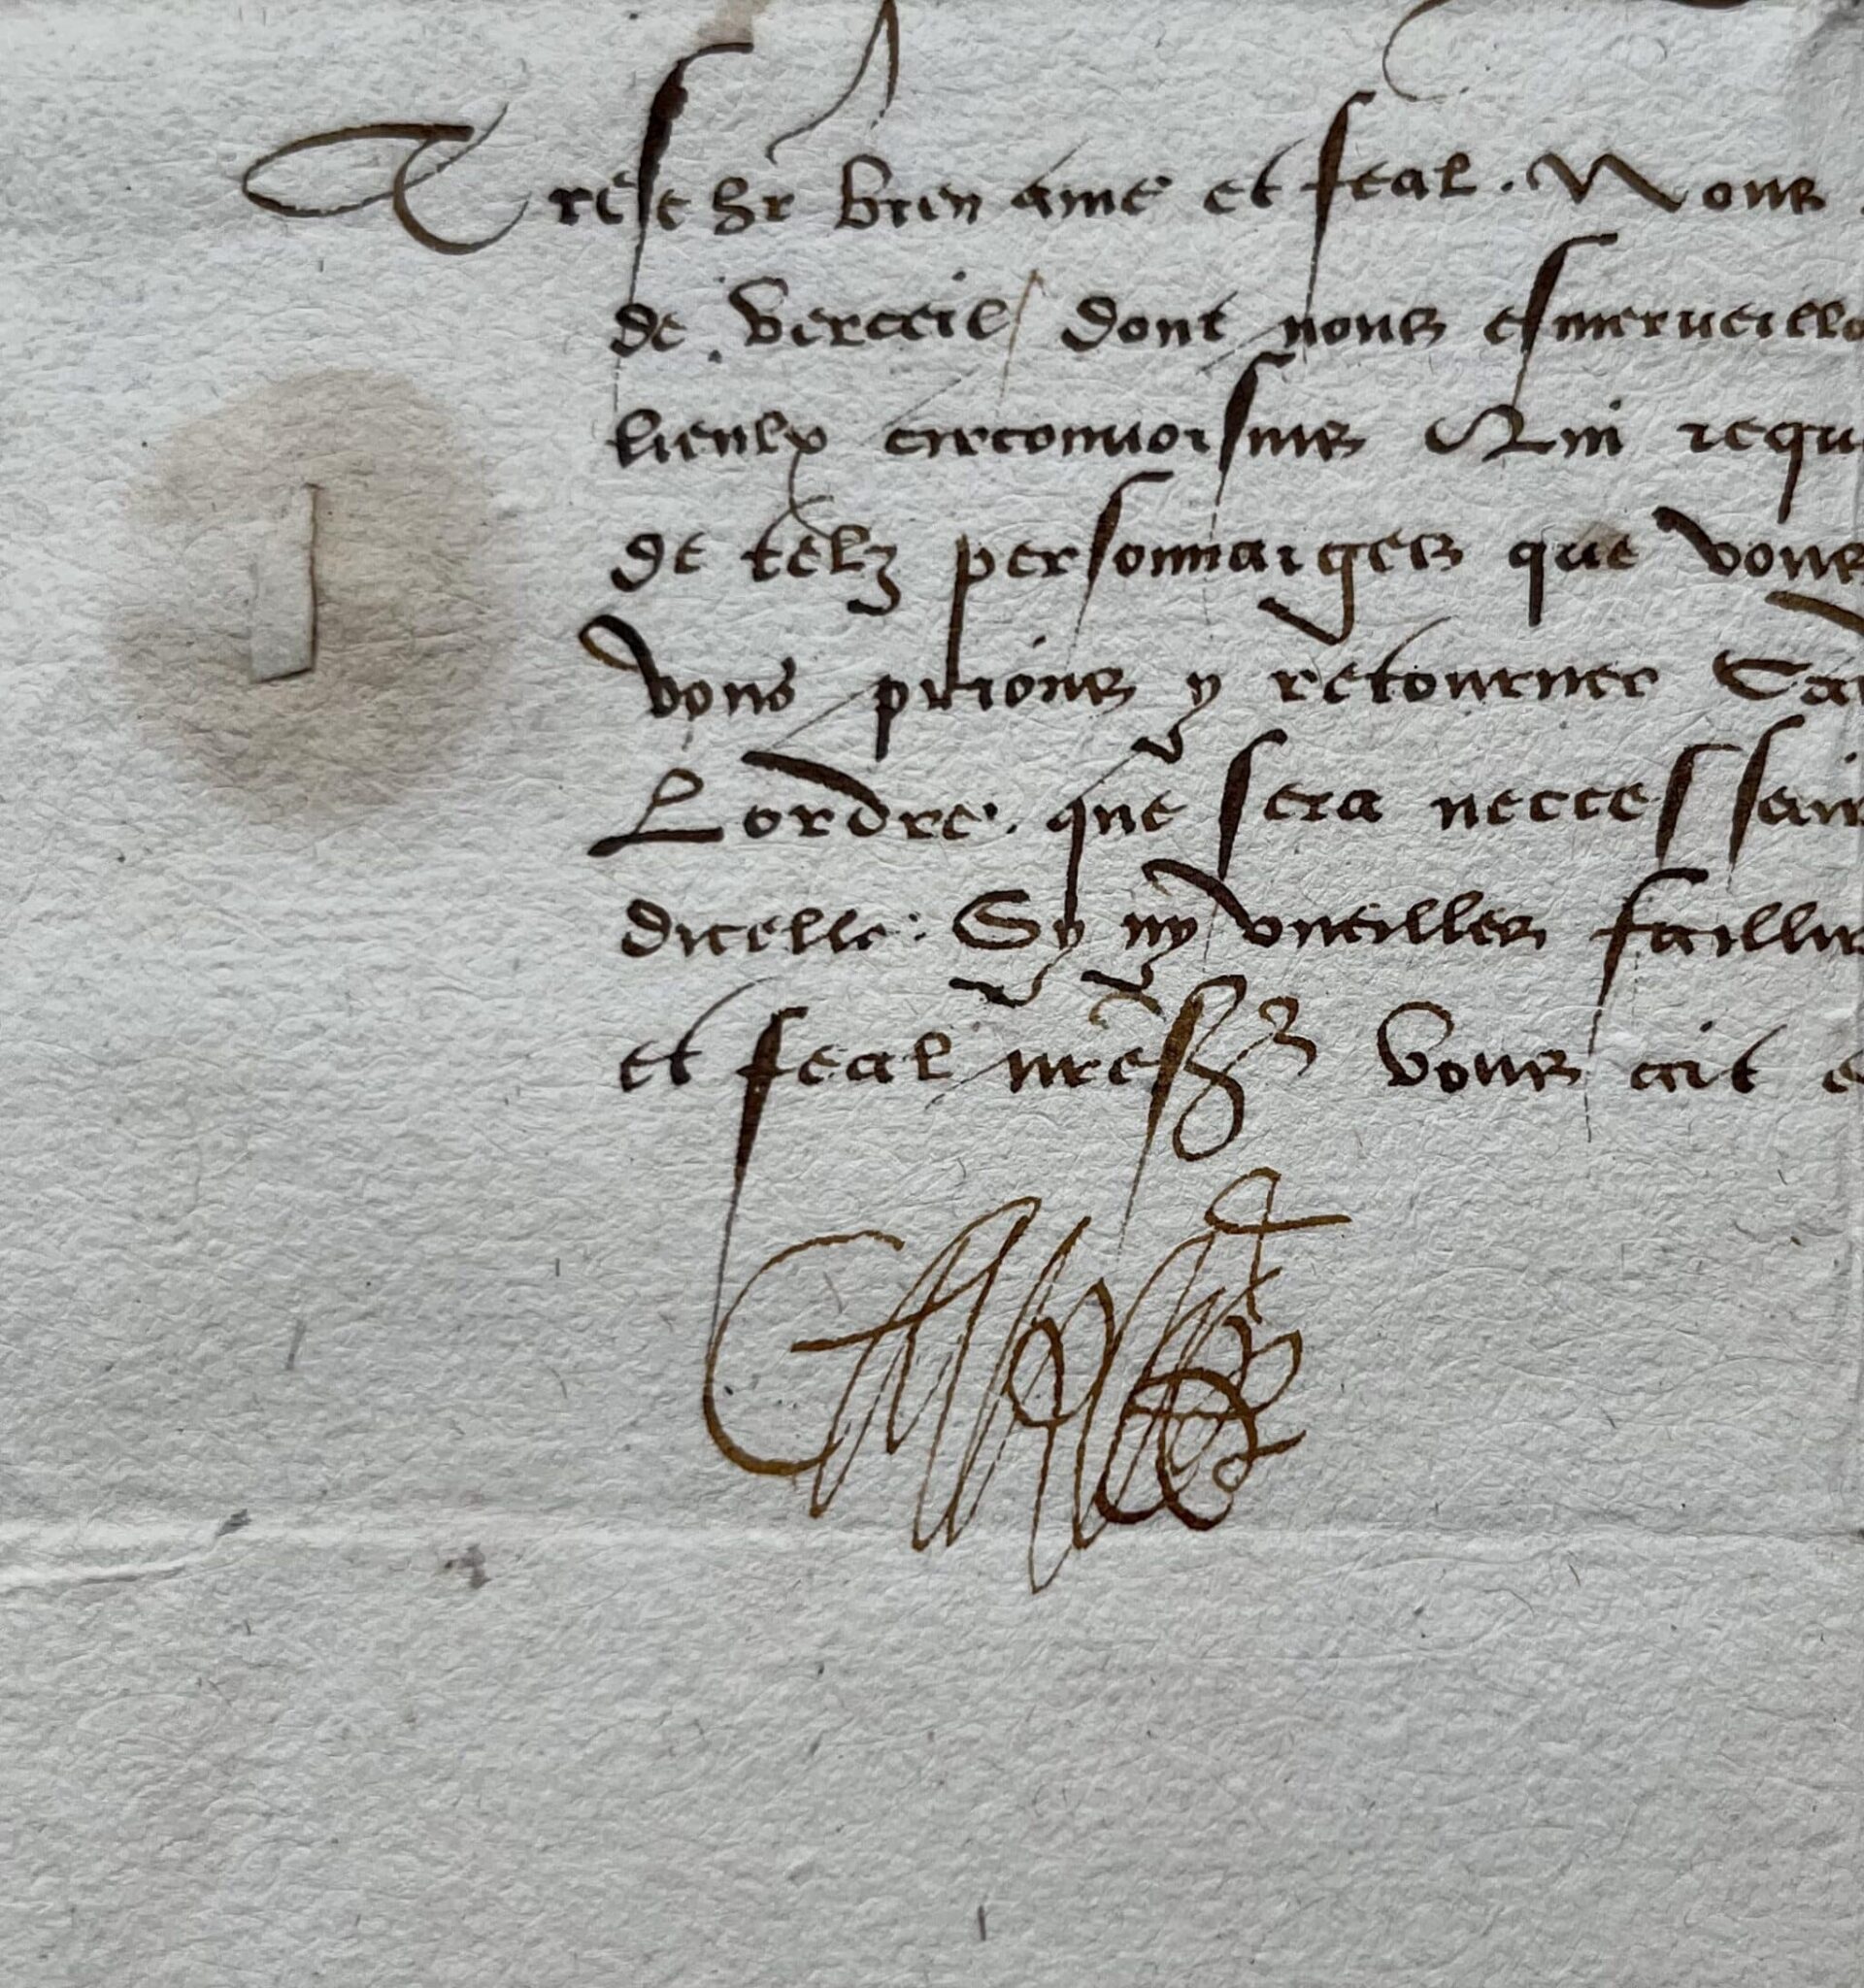 Treschr bien ame et feal. Nous
de Verceil/ dont nous esmerueillo
lieulx circonuoisins Qui requ
de telz personnaiges que vous
vous prions y retourner
Lordre que sera neccessair
dicelle: Sy ny vueilles faillir
et feal nreSgr vous ait e